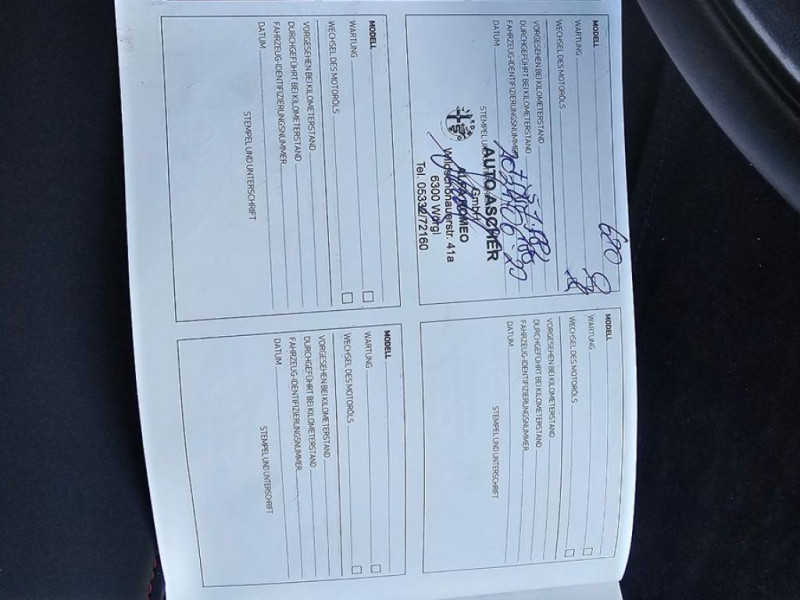 MODELL
WARTUNG
WECHSEL DES MOTORÖLS
VORGESEHEN BEI KILOMETERSTAND
DURCHGEFÜHRT BEI KILOMETERSTAND
FAHRZEUG-IDENTIFIZIERUNGSNUMMER
DATUM
STEMPEL UND
AUTO ASCHER
GmbH
ALFA ROMEO
Wildschönauerstr. 41a
6300 Wörgl
Tel. 05332/72160
MODELL
WARTUNG
WECHSEL DES MOTORÖLS
VORGESEHEN BEI KILOMETERSTAND
DURCHGEFÜHRT BEI KILOMETERSTAND
FAHRZEUG-IDENTIFIZIERUNGSNUMMER
DATUM
STEMPEL UND UNTERSCHRIFT
MODELL
WARTUNG
WECHSEL DES MOTORÖLS
VORGESEHEN BEI KILOMETERSTAND
DURCHGEFÜHRT BEI KILOMETERSTAND
FAHRZEUG-IDENTIFIZIERUNGSNUMMER
DATUM
STEMPEL UND UNTERSCHRIFT
MODELL
WARTUNG
WECHSEL DES MOTORÖLS
VORGESEHEN BEI KILOMETERSTAND
DURCHGEFÜHRT BEI KILOMETERSTAND
FAHRZEUG-IDENTIFIZIERUNGSNUMMER
DATUM
STEMPEL UND UNTERSCHRIFT